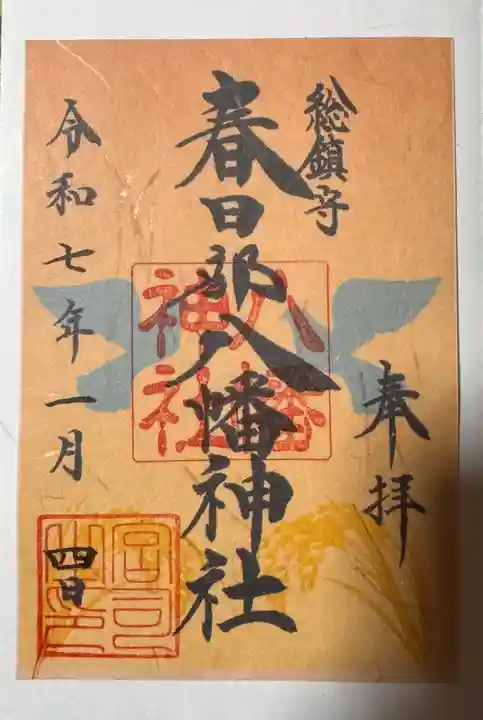 奉拝
総鎮守
春日部八幡神社
八幡
神社
令和七年一月四日
宮司
之印